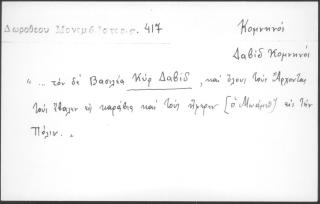 Δωροθέου Μονεμβ. Ἱστορ. σ. 417
Κομνηνοί
Δαβὶδ Κομνηνός
“ ... τὸν δὲ Βασιλέα Κὺρ Δαβὶδ , καὶ ὅλους τοὺς Ἄρχοντας
τοὺς ἔβαλεν εἰς καράβια καὶ τοὺς ἤφερεν [ὁ Μωάμεθ] εἰς τὴν
Πόλιν. „